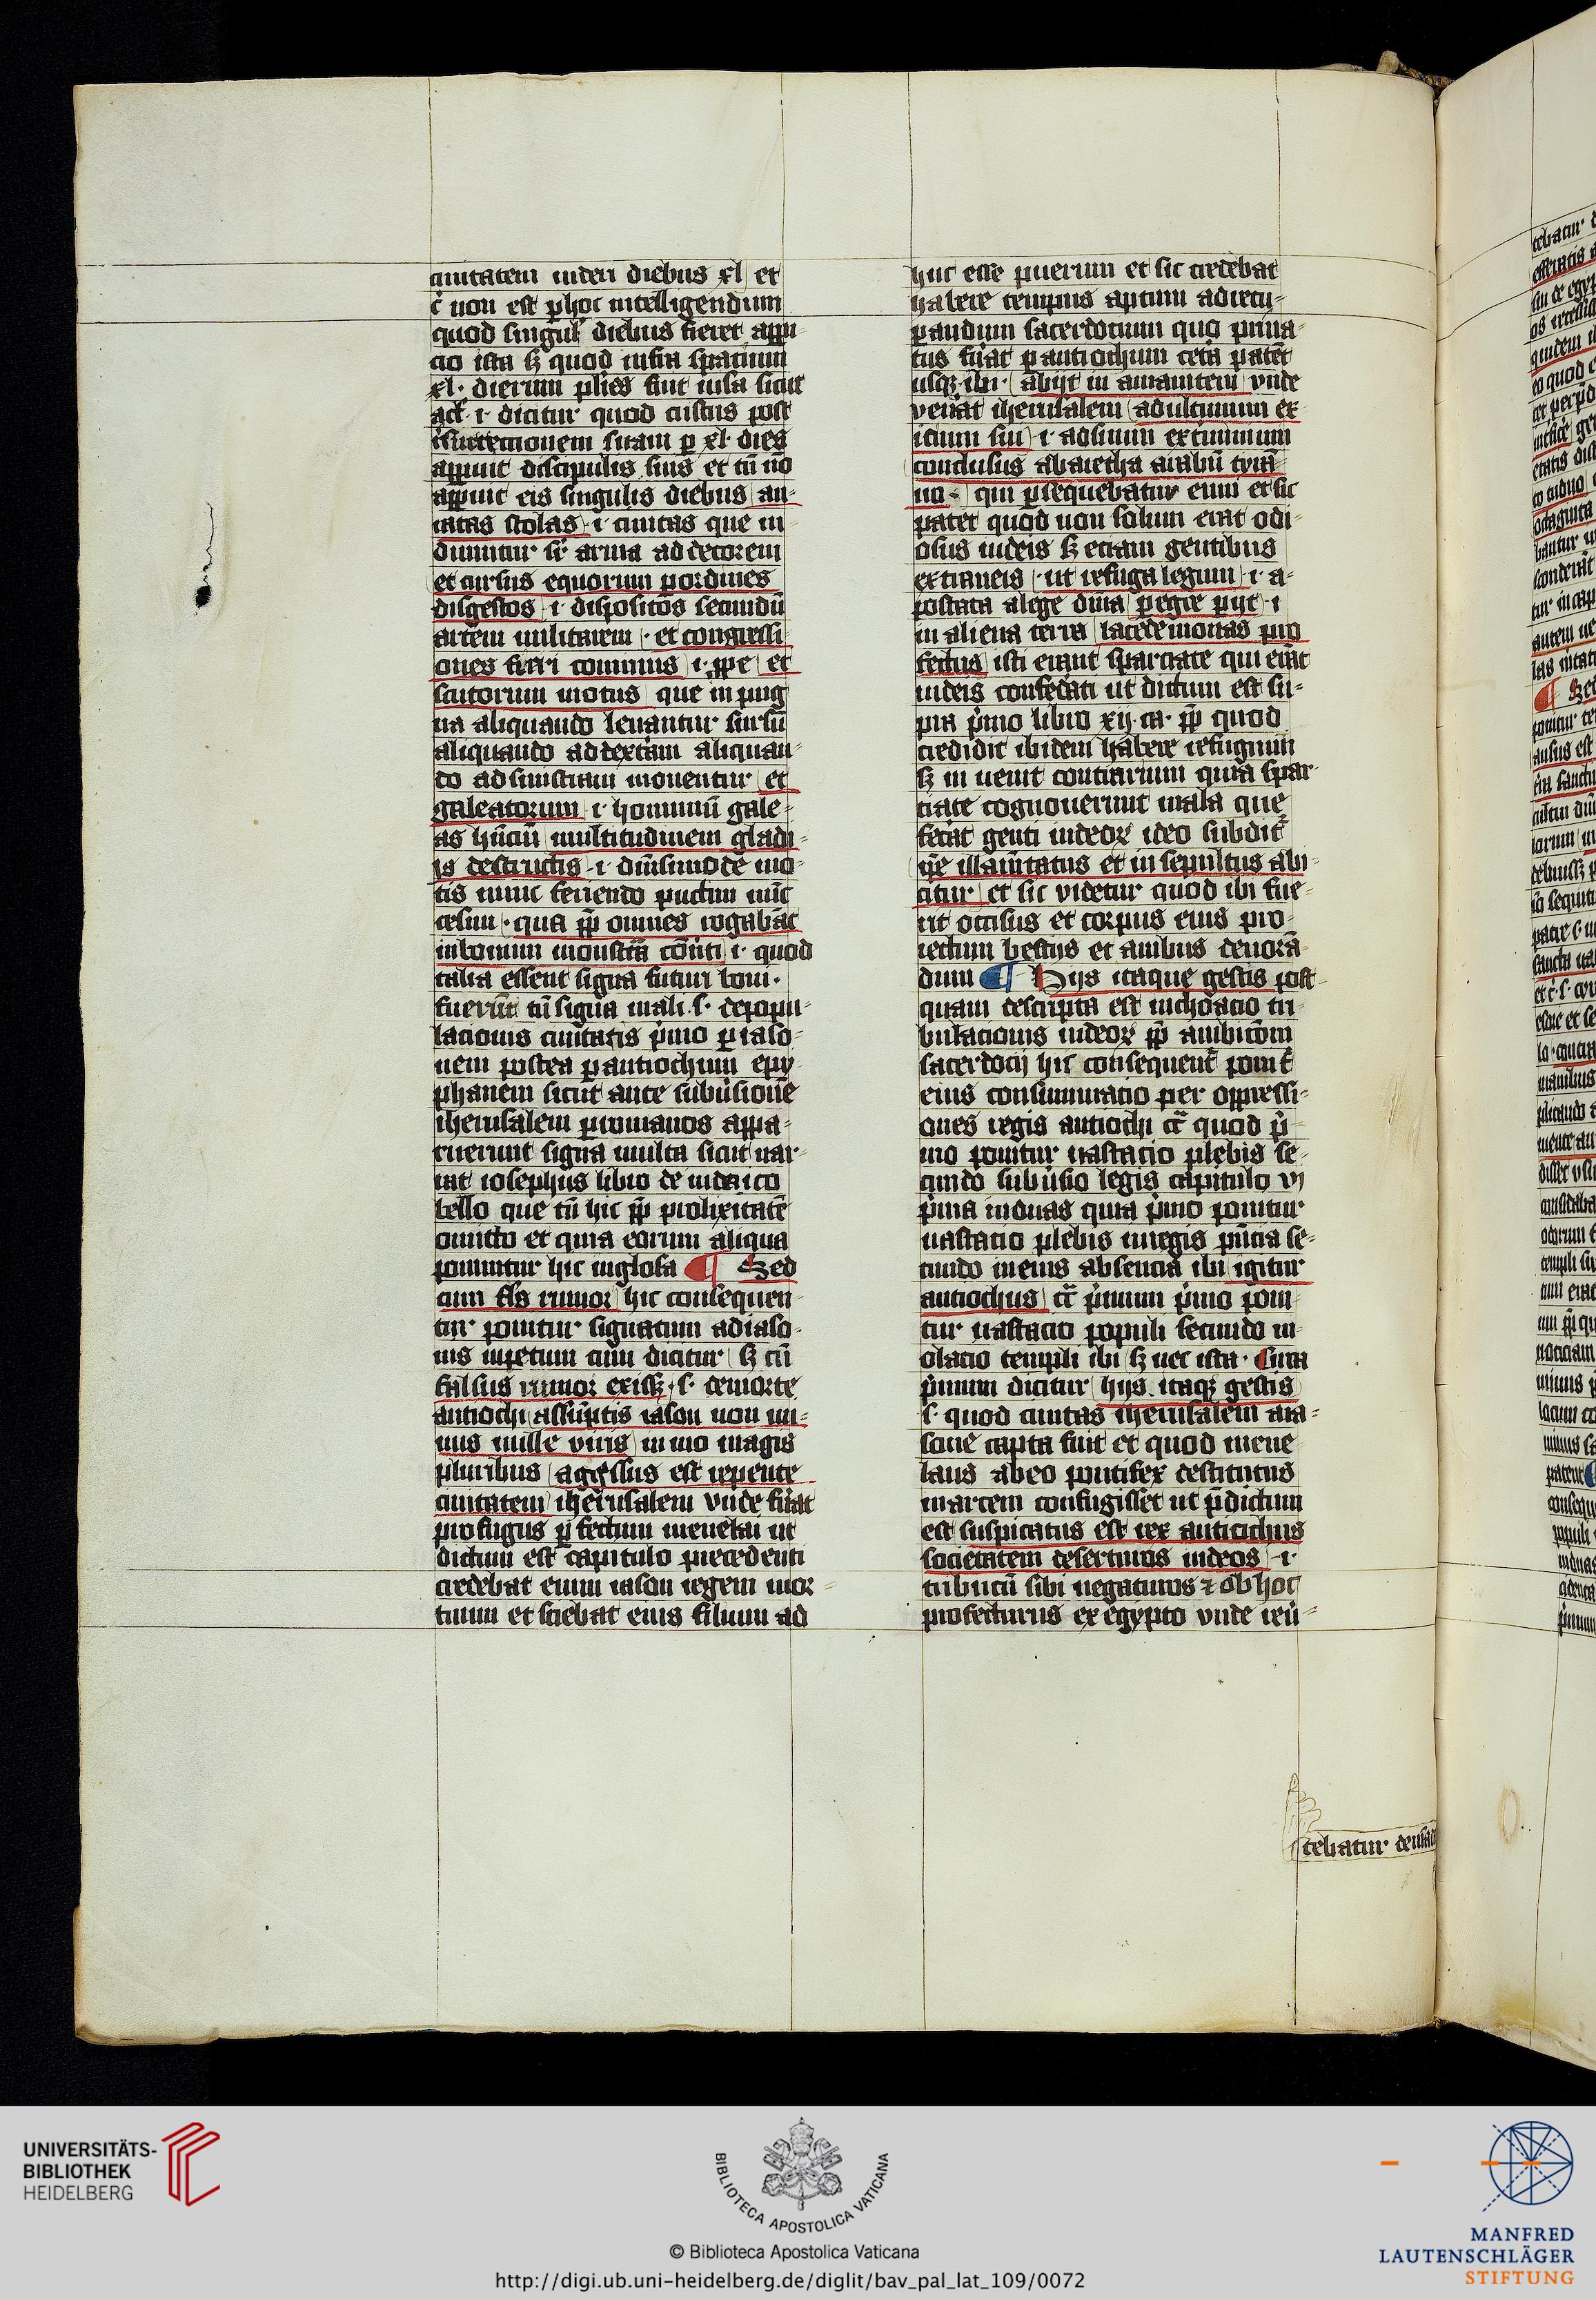 ciuitatem uideri diebus xl et
c̄ non est ꝑ hoc intelligendum
quod singul' diebus fieret appa-
cio ista sꝫ quod infra spatium
xl. dierum plies fuit uisa sicut
act. i. dicitur quod cristus post
resurrectionem suam ꝑ xl. dies
apparuit discipulis suis et tn̄ nō
apparuit eis singulis diebus au-
ratas stolas .i. ciuitas que in-
duuntur sr̄ arma ad decorem
et cursus equorum ꝑ ordines
disgestos .i. dispositos secundū
artem militarem . et congressi-
ones fieri cominus .i. ꝓpe et
scutorum motus que in pug
na aliquando leuantur sursū
aliquando ad dextram aliquan-
do ad sinistram mouentur et
galeatorum .i. hominū gale-
as hn̄ciū multitudinem gladi-
is destructis .i. diūsimode mo-
tis nunc feriendo punctim nūc
cesim . qua ꝓp̄ omnes rogabāt
in bonum monstra cōuti .i. quod
talia essent signa futuri boni.
fuerūt tn̄ signa mali .s. depopu-
lacionis ciuitatis p̄mo ꝑ iaso-
nem postea ꝑ antiochum epy-
phanem sicut ante subūsionē
iherusalem ꝑ romanos appa-
ruerunt signa multa sicut nar-
rat iosephus libro de iudaico
bello que tn̄ hic ꝓp̄ prolixitatē
omitto et quia eorum aliqua
ponuntur hic in glosa ¶ Sed
cum fls rumor hic consequen-
tur ponitur signatum ad iaso-
nis inpetum cum dicitur sꝫ cū
falsus rumor exissꝫ .s. de morte
antiochi assūptis iason non mi-
nus mille uiris in mo magis
pluribus aggressus est repente
ciuitatem iherusalem vnde fuāt
profugus ꝑ fectum menelai ut
dictum est capitulo precedenti
credebat enim iason regem mor-
tuum et sciebat eius filium ad
huc esse puerum et sic credebat
habere tempus aptum ad recu-
ꝑandum sacerdotium quo priua-
tus fuāt ꝑ antiochum cetā patēt
usqꝫ ibi . abijt in amanitem vnde
venāt iherusalem ad ultimum ex-
icium sui .i. ad suum exterminium
conclusus ab aretha arabū tyrā-
no . qui ꝑsequebatur eum et sic
patet quod non solum erat odi-
osus iudeis sꝫ etiam gentibus
extraneis . ut refuga legum .i. a-
postata a lege diuīa ꝑegre ꝑijt .i.
in aliena terra lacedemonas pro
fectus isti erant spartiate qui erāt
iudeis confedāti ut dictum est su-
pra p̄mo libro xij. ca. ꝓp̄ quod
credidit ibidem habere refugium
sꝫ in uenit contrarium quia spar-
tiate cognouerunt mala que
fecāt genti iudeoꝝ ideo subditr̄
q̄e illamētatus et in sepultus abi-
citur et sic videtur quod ibi fue-
rit occisus et corpus eius pro-
iectum bestijs et auibus deuorā-
dum ¶ Hijs itaque gestis post-
quam descripta est inchoatio tri-
bulacionis iudeoꝝ ꝓp̄ ambicōm
sacerdocij hic consequent̄ ponit̄
eius consummatio per oppressi-
ones regis antiochi ct̄ quod p̄-
mo ponitur uastacio plebis se-
cundo subūsio legis capitulo vj
p̄ma in duas quia p̄mo ponitur
uastatio plebis in regis pn̄cia se-
cundo in eius absencia ibi igitur
antiochus ct̄ p̄mum p̄mo poni-
tur uastacio populi secundo ui-
olacio templi ibi sꝫ nec ista . Circa
p̄mum dicitur hijs itaqꝫ gestis
.s. quod ciuitas iherusalem a ia-
sone capta fuit et quod mene
laus ab eo pontifex destitutus
in arcem confugisset ut p̄dictum
est suspicatus est rex antiochus
societatem deserturos iudeos .i.
tributū sibi negaturos ⁊ ob hoc
profecturus ex egypto vnde reū-
tebatur deusac
UNIVERSITÄTS-
BIBLIOTHEK
HEIDELBERG
BIBLIOTECA APOSTOLICA VATICANA
© Biblioteca Apostolica Vaticana
http://digi.ub.uni-heidelberg.de/diglit/bav_pal_lat_109/0072
MANFRED
LAUTENSCHLÄGER
STIFTUNG